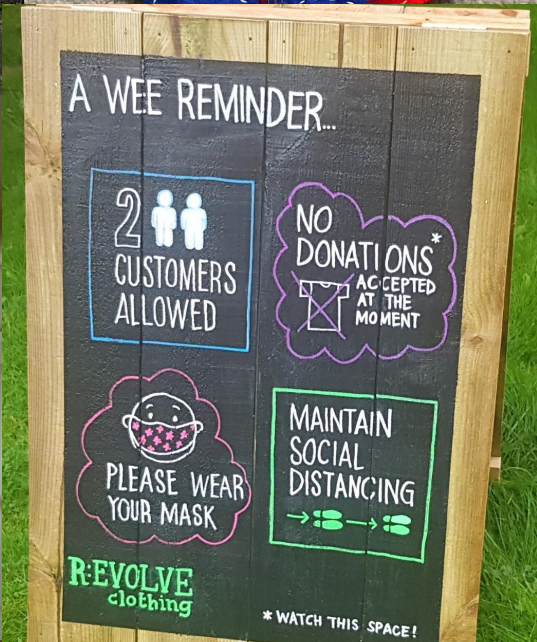 A WEE REMINDER...
2
CUSTOMERS
ALLOWED
NO
DONATIONS*
ACCEPTED
AT THE
MOMENT
PLEASE WEAR
YOUR MASK
MAINTAIN
SOCIAL
DISTANCING
R:EVOLVE
clothing
* WATCH THIS SPACE!